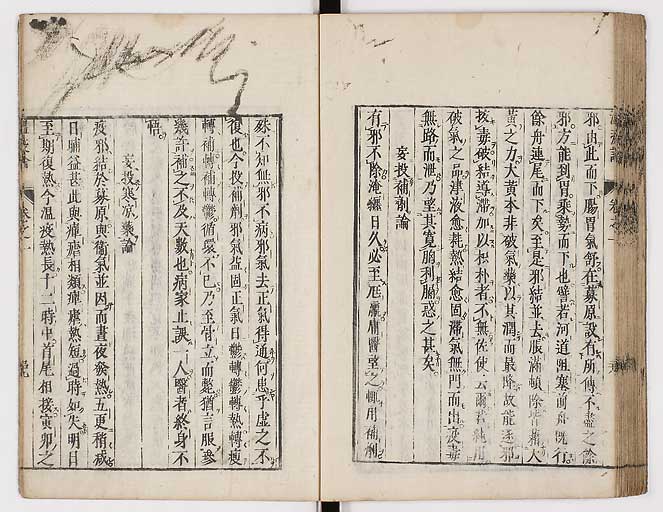 邪由此而下腸胃氣舒在募原設有所傳不盡之餘
邪方能到胃乘勢而下也譬若河道阻塞前舟既行
餘舟連尾而下矣至是邪結並去脹滿頓除皆藉大
黃之力大黃本非破氣藥以其潤而最降故能逐邪
拔毒破結導滯加以枳朴者不無佐使云爾若純用
破氣之品津液愈耗熱結愈固滯氣無門而出疫毒
無路而泄乃望其寬胸利膈惑之甚矣
妄投補劑論
有邪不除淹纏日久必至尫羸庸醫望之輒用補劑
殊不知無邪不病邪氣去正氣得通何患乎虛之不
復也今投補劑邪氣益固正氣日鬱轉鬱轉熱轉
轉補轉補轉鬱循環不已乃至骨立而斃猶言服參
幾許補之不及天數也病家止誤一人醫者終身不
悟
妄投寒涼藥論
疫邪結於募原與衛氣並因而晝夜發熱五更稍減
日晡益甚此與瘅瘧相類瘅瘧熱短過時如失明日
至期復熱今溫疫熱長十二時中首尾相接寅卯之